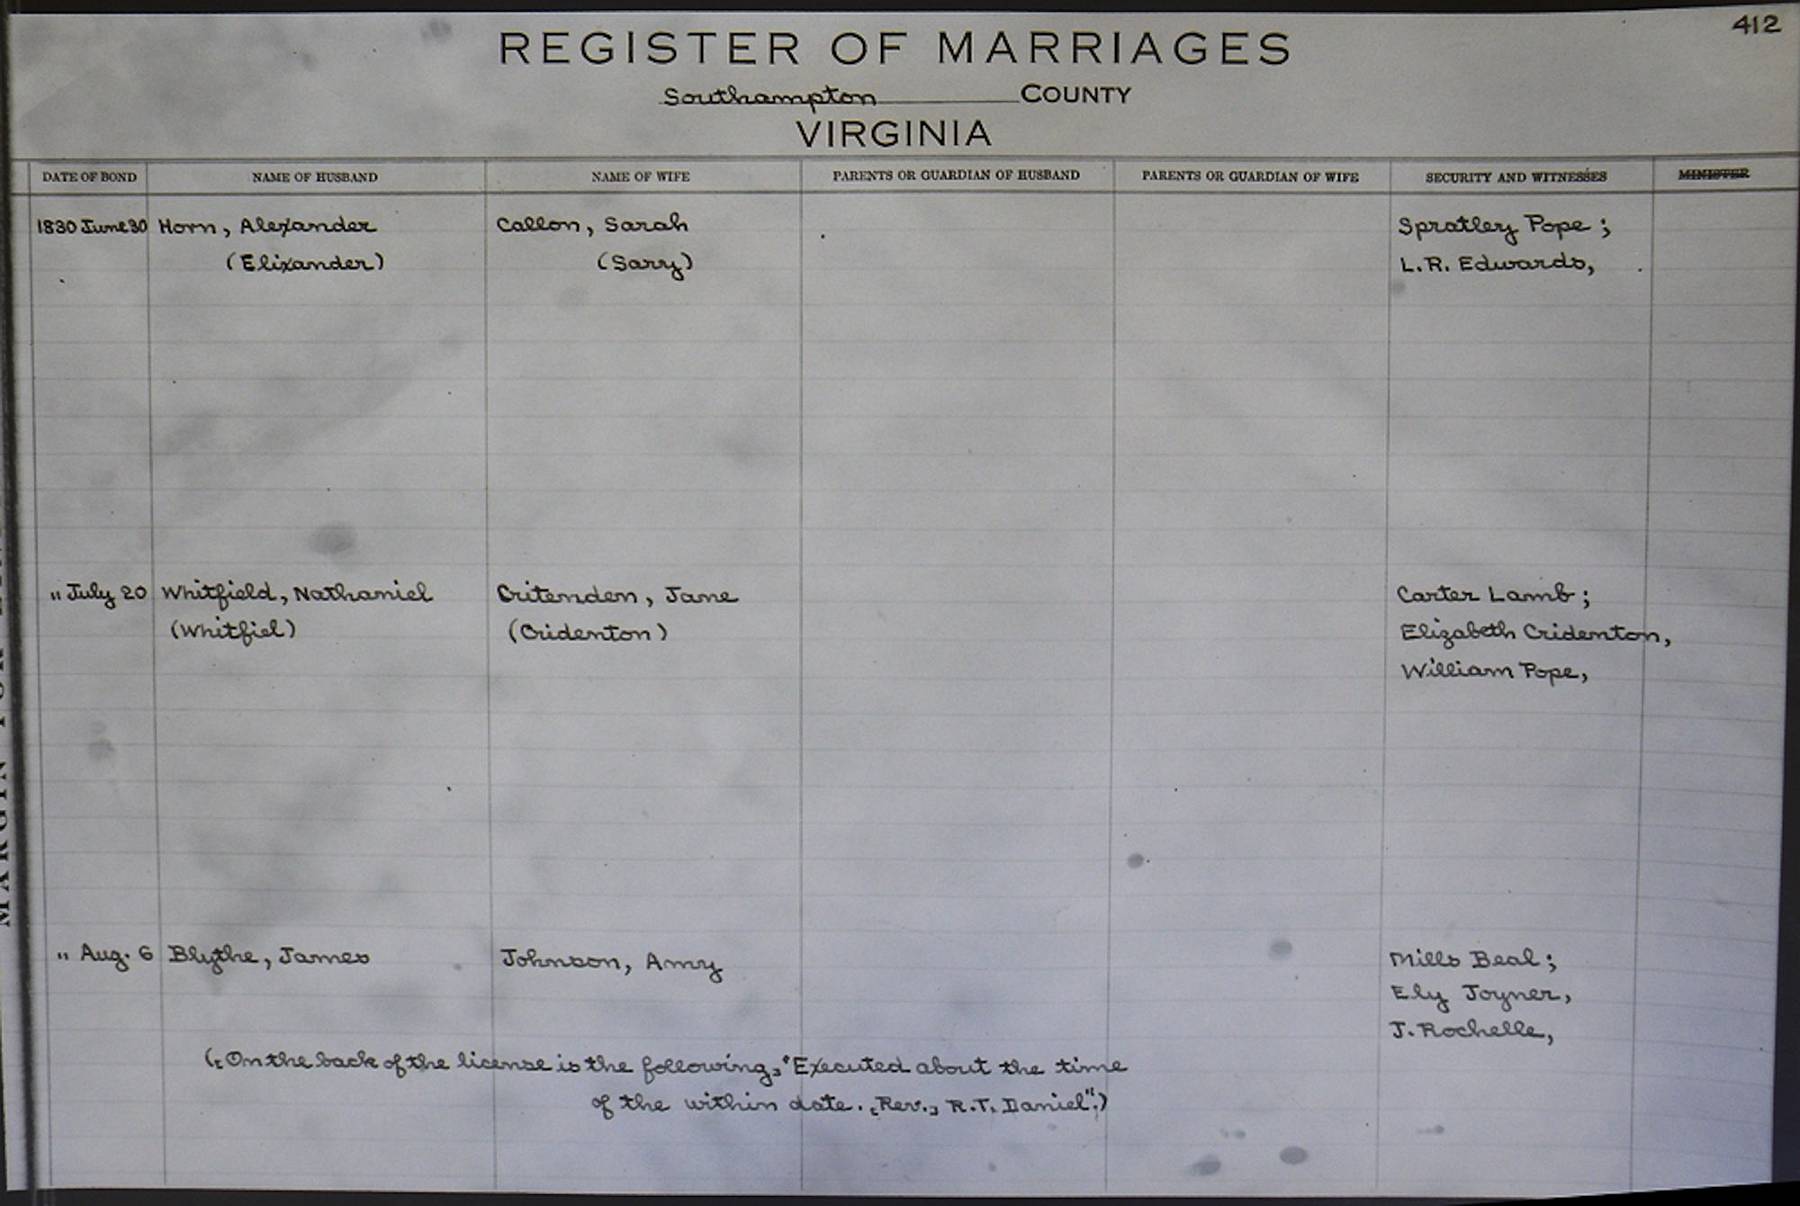 412
REGISTER OF MARRIAGES
Southampton COUNTY
VIRGINIA
DATE OF BOND NAME OF HUSBAND NAME OF WIFE PARENTS OR GUARDIAN OF HUSBAND PARENTS OR GUARDIAN OF WIFE SECURITY AND WITNESSES MINISTER
1830 June 30 Horn, Alexander Callon, Sarah Spratley Pope ;
(Elixander) (Sary) L.R. Edwards,
" July 20 Whitfield, Nathaniel Critenden, Jane Carter Lamb ;
(Whitfiel) (Cridenton) Elizabeth Cridenton,
William Pope,
" Aug. 6 Blythe, James Johnson, Amy Mills Beal ;
Ely Joyner,
J. Rochelle,
([On the back of the license is the following,] "Executed about the time
of the within date. [Rev.,] R.T. Daniel".)
MARGIN FOR